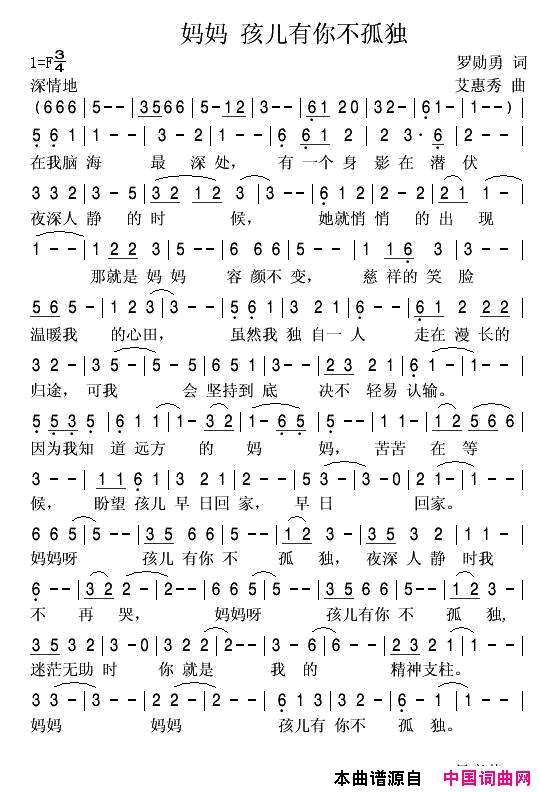 妈妈 孩儿有你不孤独
1=F 3/4
罗勋勇 词
深情地
艾惠秀 曲
(666 | 5-- | 3566 | 5-12 | 3-- | 61 20 | 32-2 | 61- | 1--)|
561 | 1-- | 3-2 | 1-- | 6 61 | 1-- | 23·6 | 2-- |
在我脑 海 最 深 处， 有 一个 身 影 在 潜 伏
332 | 3-5 | 32 12 | 3-- | 3-- | 323 | 5-6 | 2-2 | 21 1 | 1-- |
夜深人 静 的 时 候， 她就悄 悄 的 出 现
1-- | 122 | 3-5 | 5-- | 6-5 | 332 | 5-- | 1 16 | 3-- | 6-- |
那就是 妈 妈 容 颜不 变， 慈 祥的 笑 脸
565 | 5-- | 123 | 3-- | 561 | 3-2 | 1-- | 61 2 | 2 22 |
温暖我 的心田， 虽然我 独 自一 人 走在 漫 长的
3-- | 332 | 5-- | 565 | 651 | 3-- | 23 2 | 21 2 | 61- | 1-- |
归途，可我 会 坚持到 底 决不 轻易 认输。
5 535 | 611 | 1-3 | 2-- | 1-65 | 5-- | 1-2 | 12 56 6 |
因为我知 道 远方 的 妈 妈， 苦苦 在 等
3-- | 11 61 | 3 12 | 2-2 | 53- | 3-0 | 21- | 1-- |
候， 盼望 孩儿 早 日回 家， 早 日 回家。
665 | 5-- | 35 66 | 5-- | 12 3 | 332 | 3-2 | 11- |
妈妈呀 孩儿 有你 不 孤 独，夜深 人 静 时我
6-- | 32 2 | 2-2 | 665 | 5-- | 35 66 | 5-- | 12 3 | 3-- |
不 再 哭， 妈妈呀 孩儿有你 不 孤 独，
35 32 | 3-0 | 32 2 | 2-5 | 6-- | 6-6 | 23 21 | 1-- |
迷茫无助 时 你 就是 我 的 精神支柱。
33- | 3-- | 22- | 2-- | 613 | 332 | 5-- | 6-2 | 1-- |
妈妈 妈妈 孩儿有 你不 孤 独。
本曲谱源自 中国词曲网